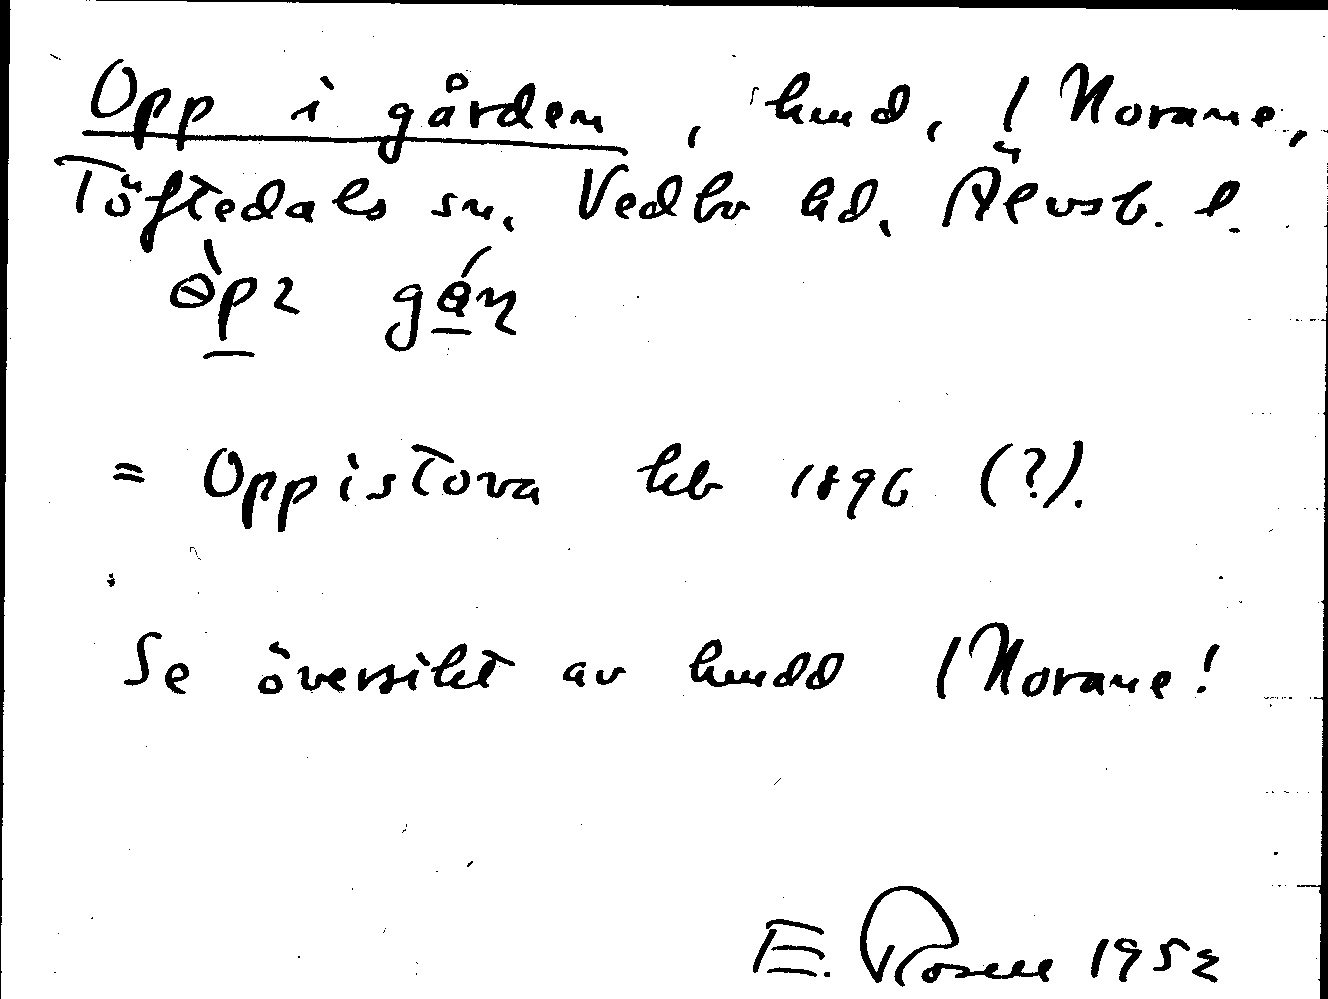 Opp i gården, hmd, / Norane,
Töftedals sn, Vedbo hd, Älvsb. l.
= Oppistova hb 1896 (?).
Se översikt av hmdd / Norane!
E. Rosell 1952